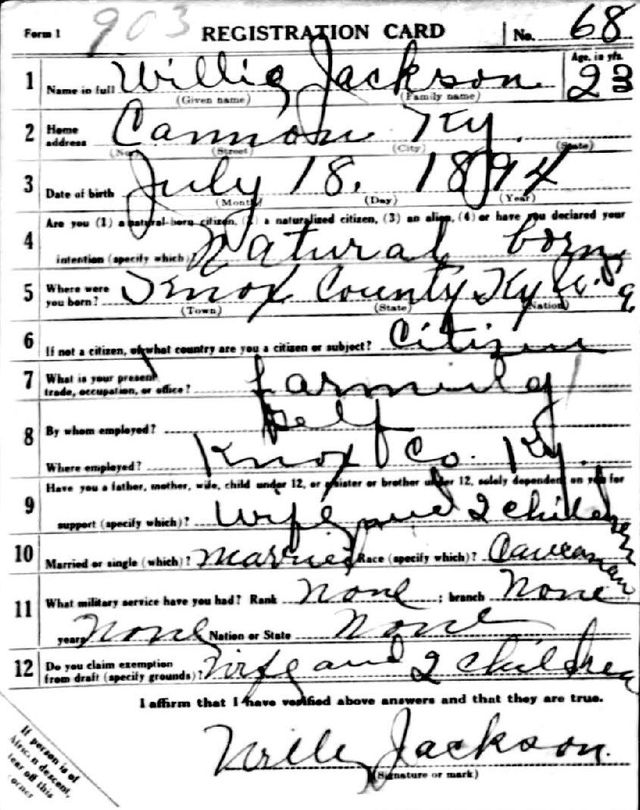 Form 1 903 REGISTRATION CARD No. 68
1 Name in full Willie Jackson Age, in yrs. 22
(Given name) (Family name)
2 Home address Cannon Ky.
(No.) (Street) (City) (State)
3 Date of birth July 18, 1894
(Month) (Day) (Year)
4 Are you (1) a natural-born citizen, (2) a naturalized citizen, (3) an alien, (4) or have you declared your
intention (specify which)? Natural born
5 Where were you born? Knox County Ky U.S.a
(Town) (State) (Nation)
6 If not a citizen, of what country are you a citizen or subject? Citizen
7 What is your present trade, occupation, or office? farming
8 By whom employed? Self
Where employed? Knox Co. Ky.
9 Have you a father, mother, wife, child under 12, or a sister or brother under 12, solely dependent on you for
support (specify which)? Wife and 2 children
10 Married or single (which)? Married Race (specify which)? Caucasian
11 What military service have you had? Rank None ; branch None
years None Nation or State None
12 Do you claim exemption from draft (specify grounds)? Wife and 2 children
I affirm that I have verified above answers and that they are true.
Willie Jackson.
(Signature or mark)
If person is of
African descent,
tear off this
corner